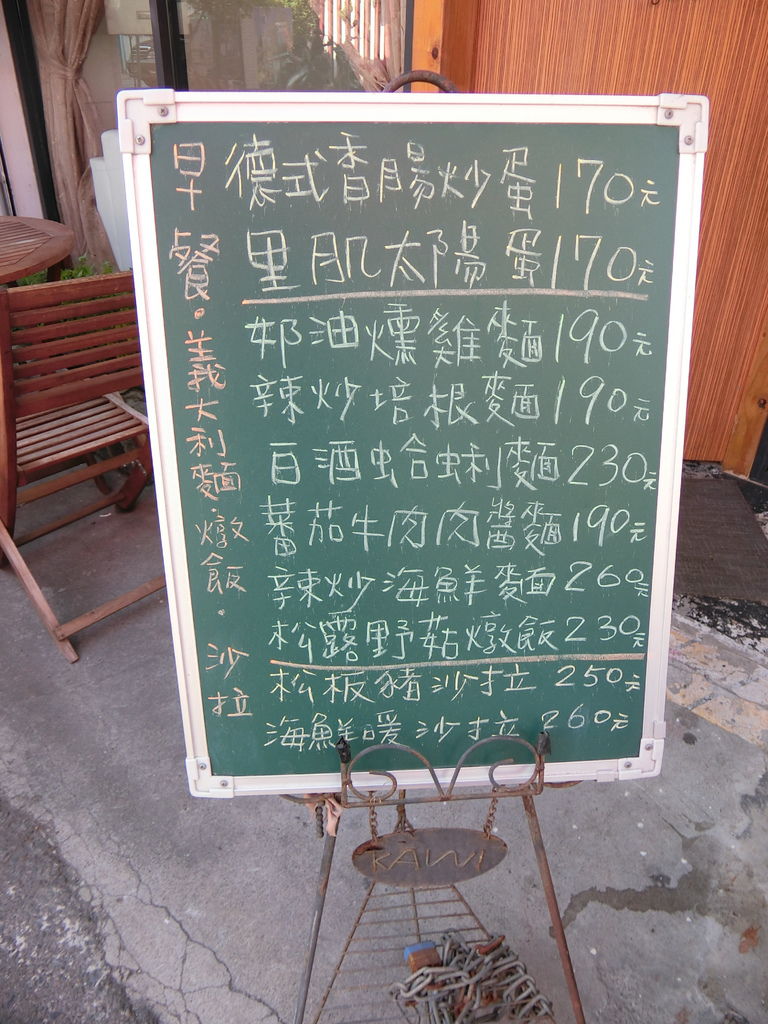 早餐・義大利麵・燉飯・沙拉
德式香腸炒蛋170元
里肌太陽蛋170元
奶油燻雞麵190元
辣炒培根麵190元
白酒蛤蜊麵230元
蕃茄牛肉肉醬麵190元
辣炒海鮮麵260元
松露野菇燉飯230元
松板豬沙拉250元
海鮮暖沙拉260元
KAWI